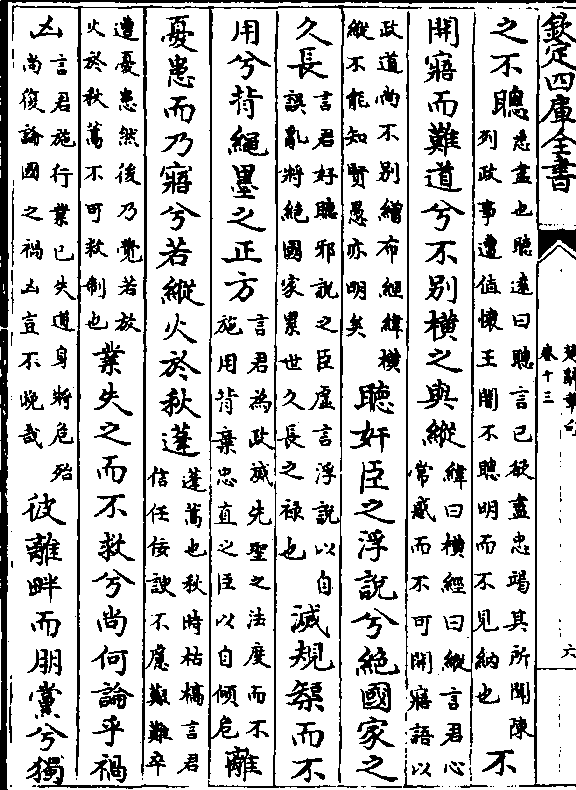 欽定四庫全書
楚辭章句
卷十三
六
之不聰悉盡也聽遠曰聰言已欲盡忠竭其所聞陳列政事遭值懷王闇不聰明而不見納也不
開寤而難道兮不別橫之與縱緯曰橫經曰縱言君心常惑而不可開寤語以
政道尚不別繒布經緯橫縱不能知賢愚亦明矣聽奸臣之浮說兮絕國家之
久長言君好聽邪說之臣虛言浮說以自誤亂將絕國家累世久長之祿也滅規榘而不
用兮背繩墨之正方言君為政滅先聖之法度而不施用背棄忠直之臣以自傾危離
憂患而乃寤兮若縱火於秋蓬蓬蒿也秋時枯槁言君信任佞諛不慮艱難卒
遭憂患然後乃覺若放火於秋蒿不可救制也業失之而不救兮尚何論乎禍
凶言君施行業已失道身將危殆尚復論國之禍凶豈不晚哉彼離畔而朋黨兮獨